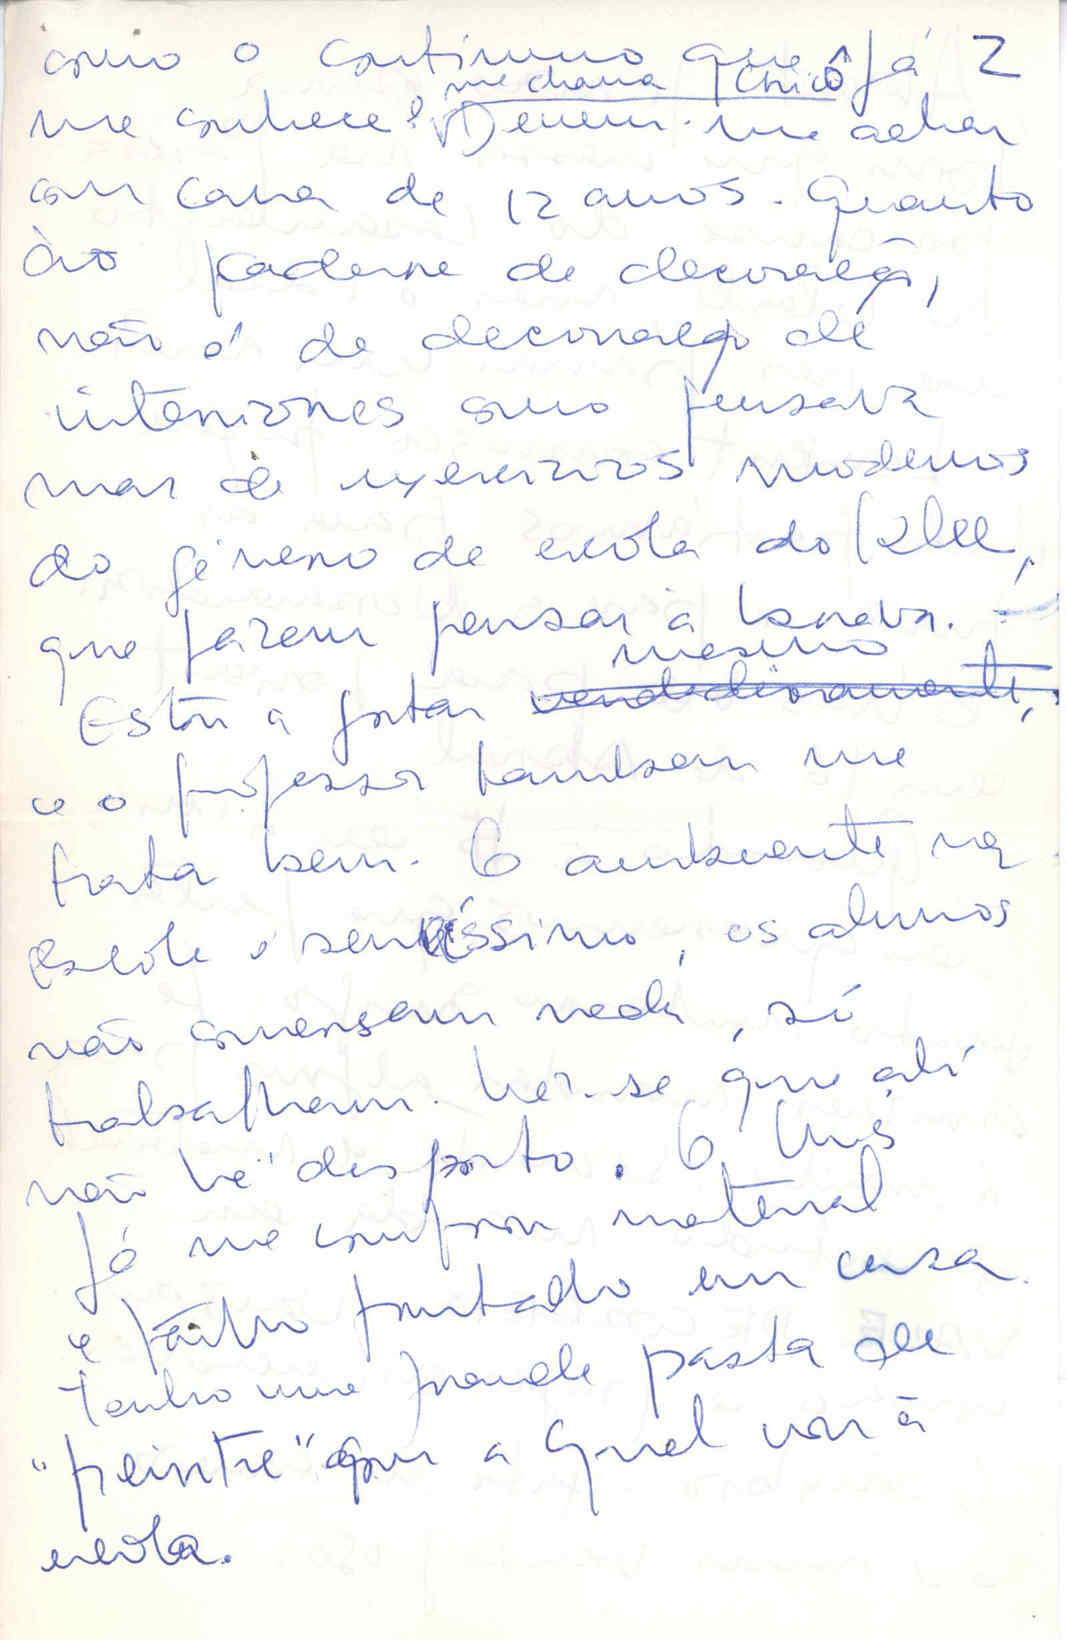 como o contínuo que já 2
me chama Chicô
me conhece! Devem-me achar
com cara de 12 anos. Quanto
ao caderno de decoração,
não é de decoração de
interiores como pensava
mas de exercizios modernos
do género de escola do Klee,
que fazem pensar à
mesmo
Estou a gostar verdadeiramente,
e o professor também me
trata bem. O ambiente na
escola é seriíssimo, os alunos
não conversam nada, só
trabalham. Vê-se que ali
não há desporto. O Luís
já me comprou material
e tenho pintado em casa.
Tenho uma grande pasta de
"peintre" com a qual vou à
escola.